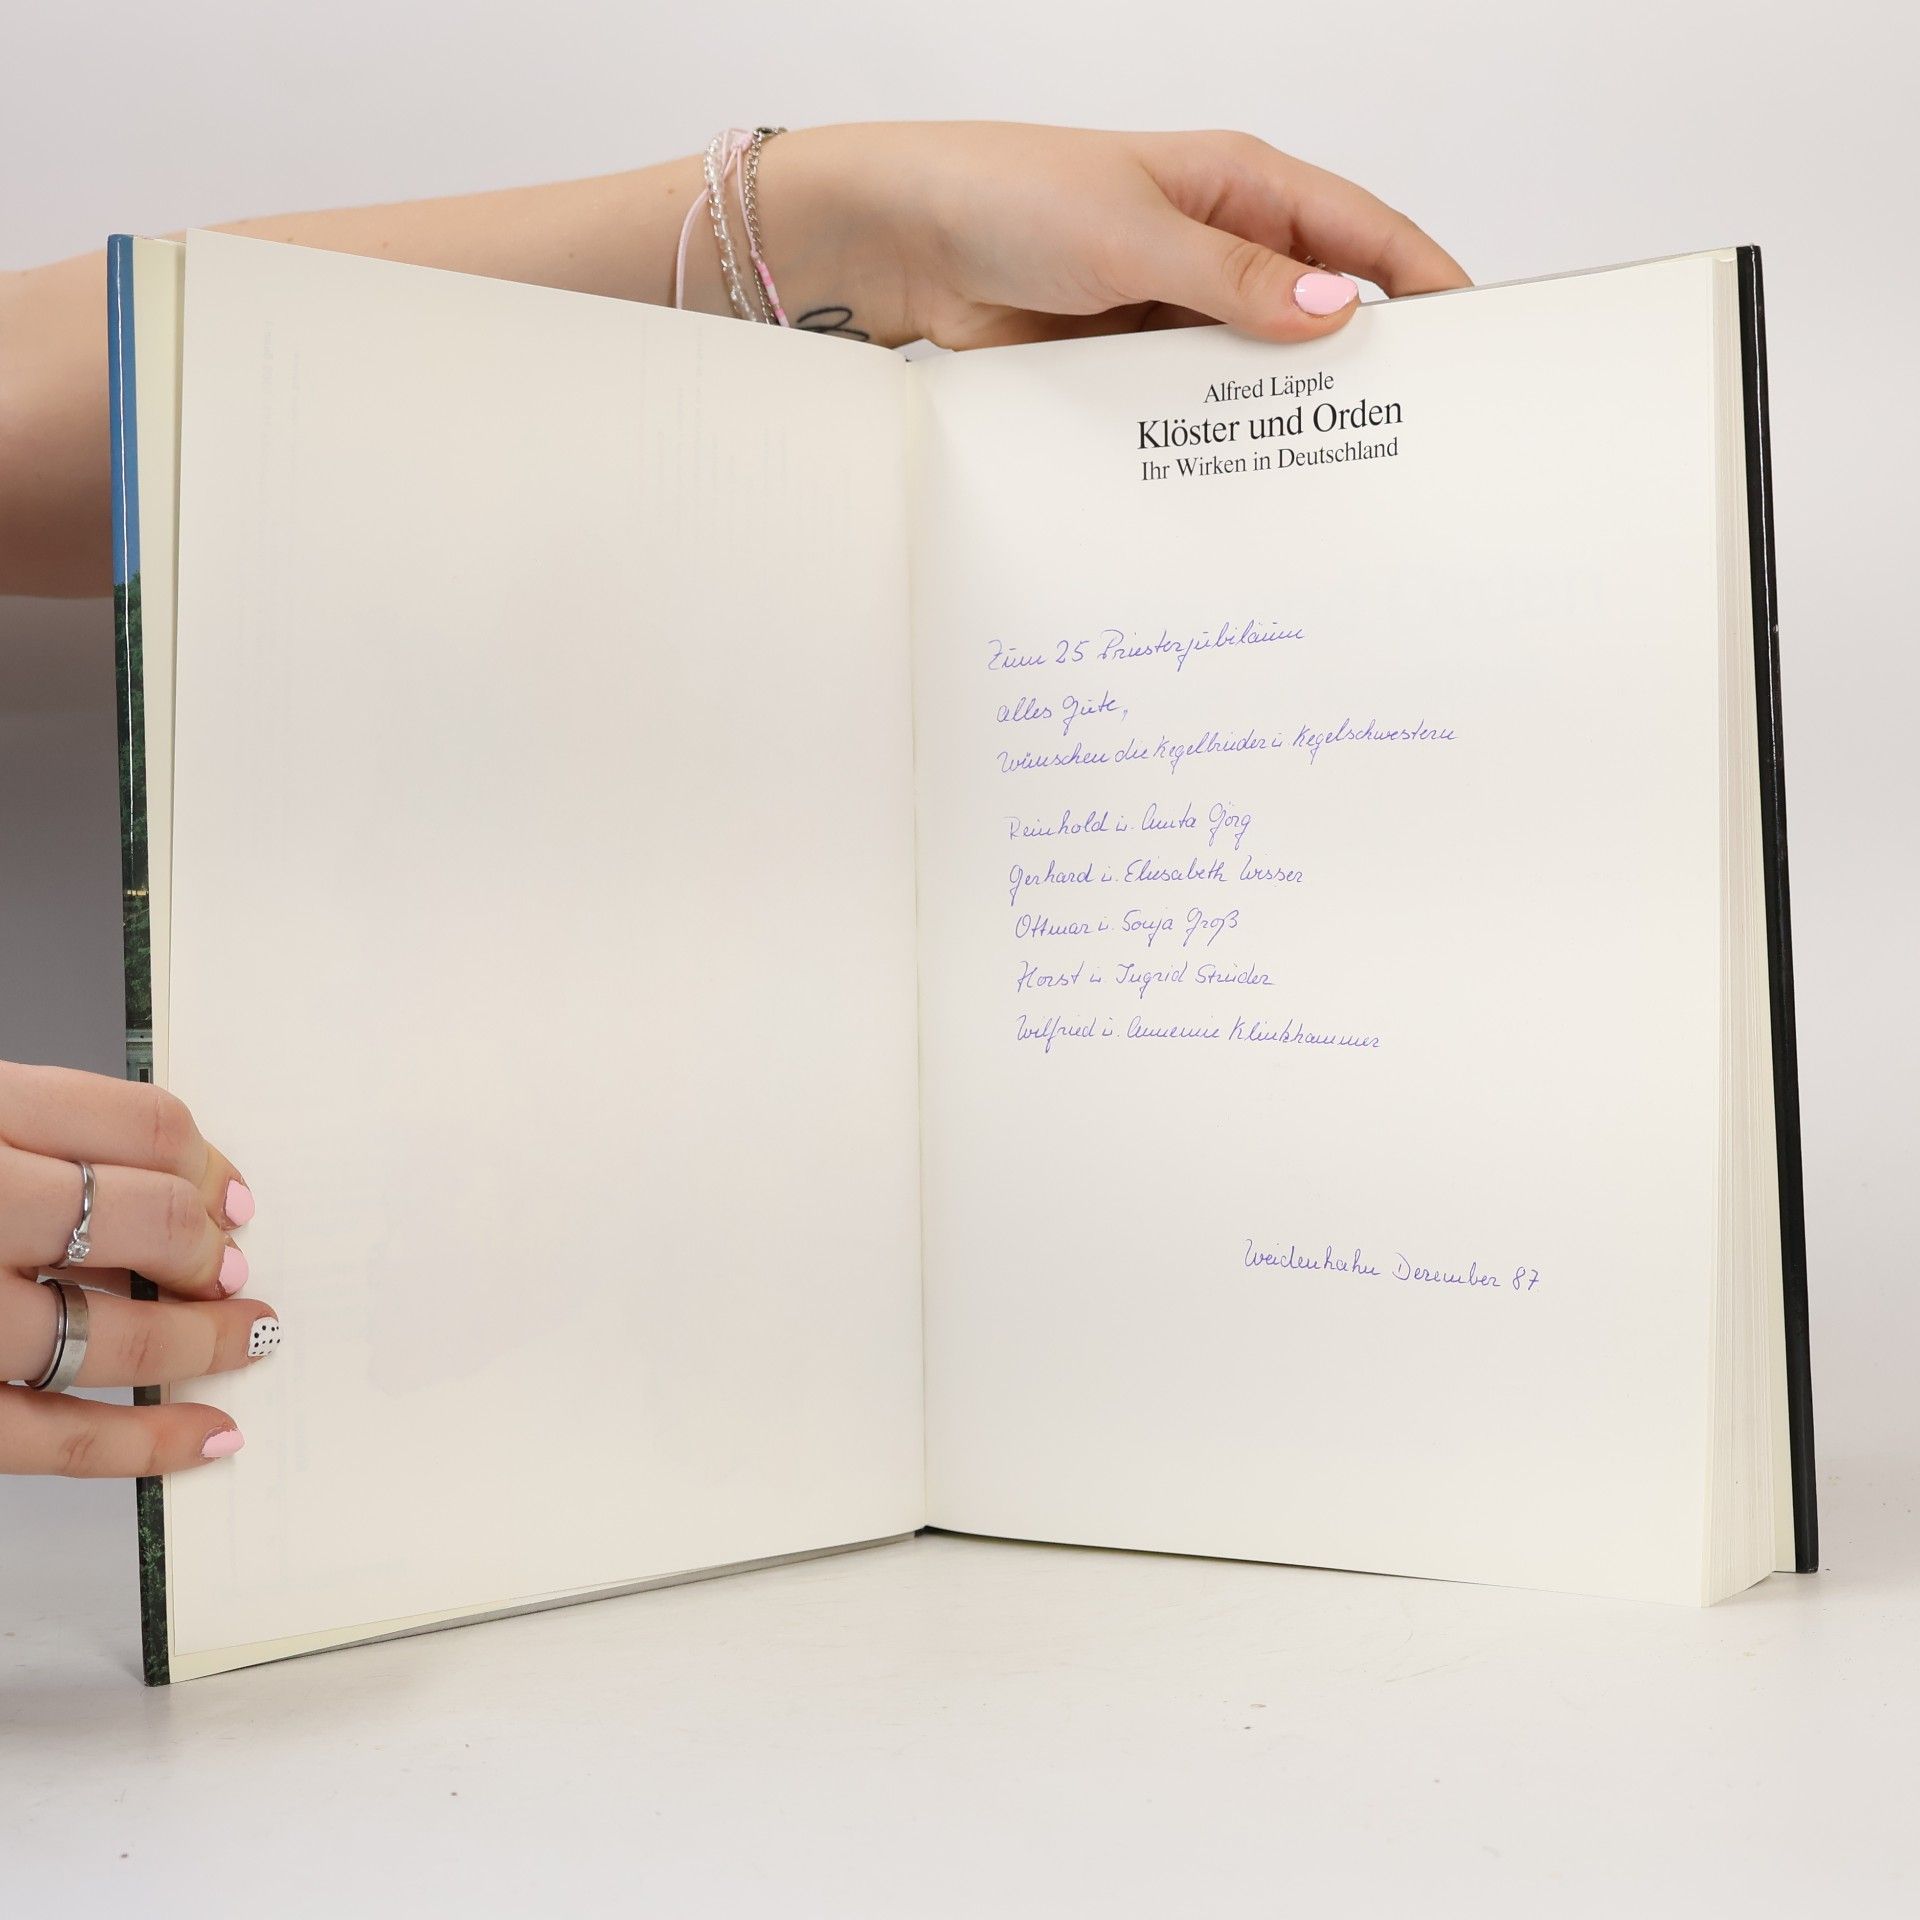 Alfred Läpple
Klöster und Orden
Ihr Wirken in Deutschland
Zum 25 Priesterjubiläum
alles Gute,
wünschen die Kegelbrüder u. Kegelschwestern
Reinhold u. Anita Görg
Gerhard u. Elisabeth Wisser
Ottmar u. Sonja Groß
Horst u. Ingrid Strüder
Wilfried u. Annemie Klinkhammer
Weidenhahn Dezember 87